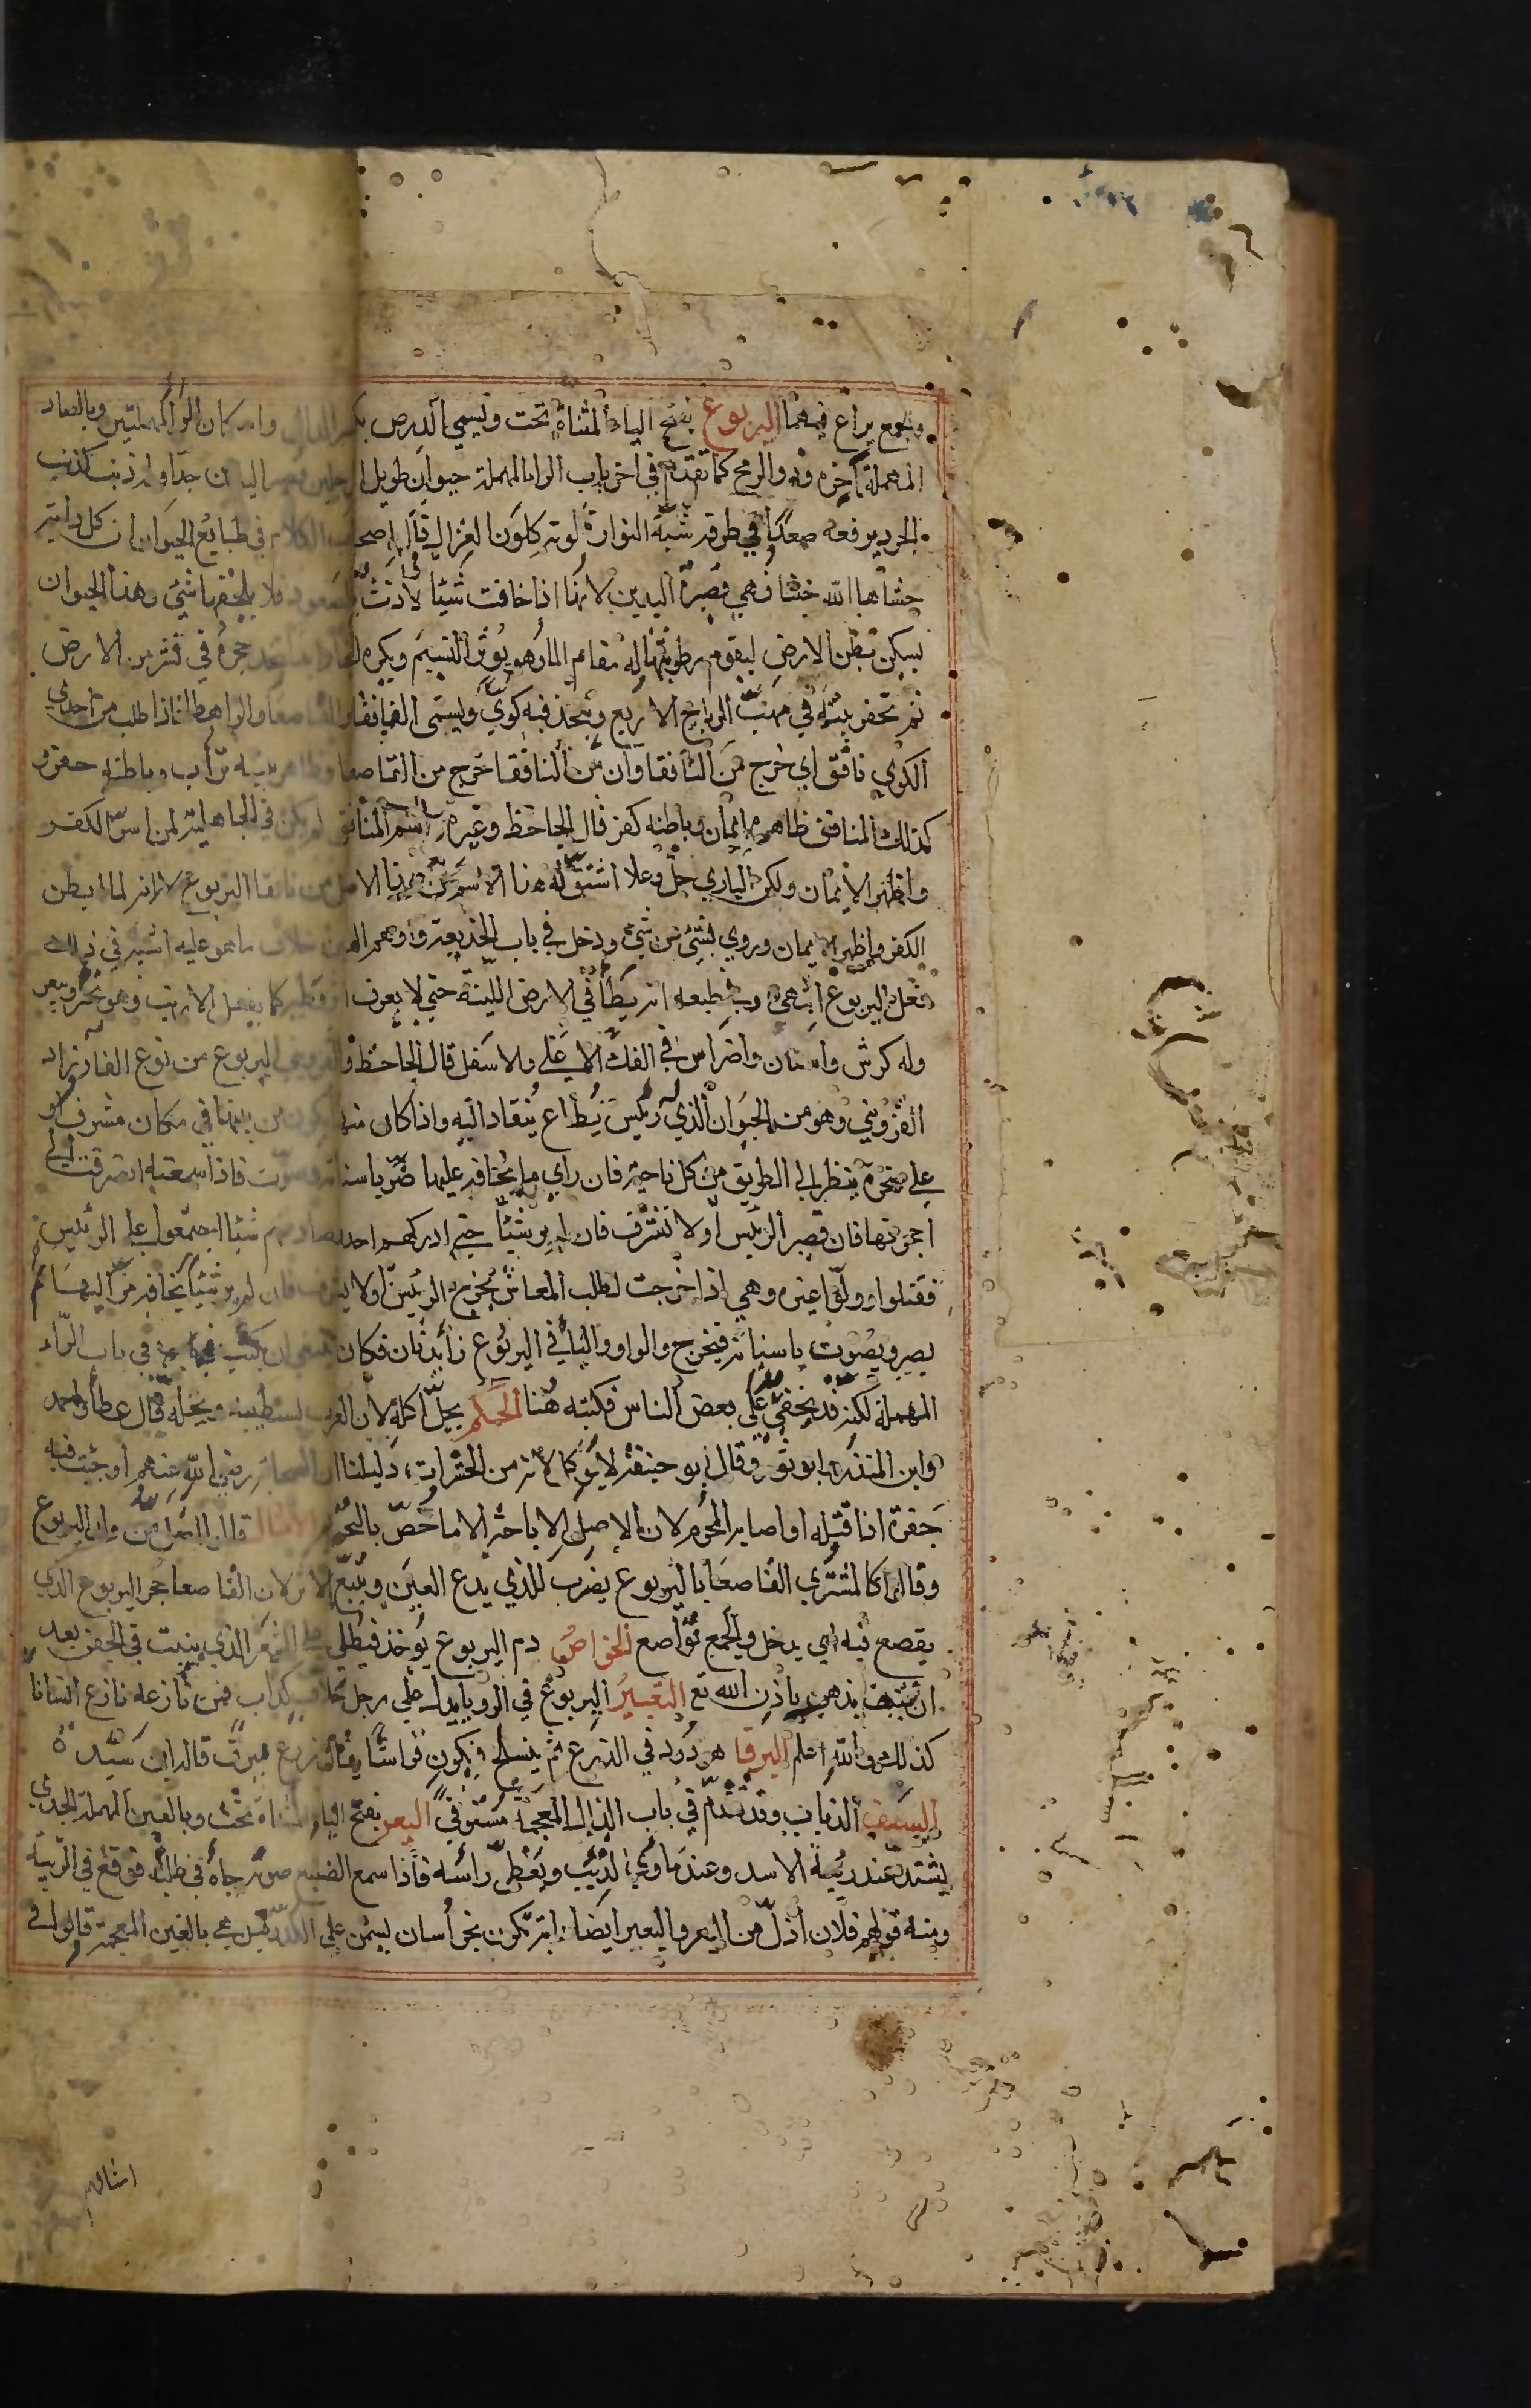 وتجمع يراع فيهما اليربوع بفتح الياء المثناة تحت ويسمى الدرص بكسر الدال واسكان الراء المهملتين وبالصاد
المهملة آخره وذو الرمح كما تقدم في اخر باب الراء المهملة حيوان طويل الرجلين قصير اليدين جدا وله ذنب كذنب
الجرد يرفعه صعدًا في طرفه شبه النوارة لونه كلون الغزال قال اصحاب الكلام في طبايع الحيوان ان كل دابة
حشاها الله خبثا فهي قصيرة اليدين لانها اذا خافت شيئا لاذت بالصعود فلا يلحقها شئ وهذا الحيوان
يسكن بطن الارض ليقوم رطوبتها له مقام الماء وهو يوثر النسيم ويكره البخار ابدا يتخذ جحره في نشز من الارض
ثم تحفر بيته في مهبّ الرياح الاربع ويتخذ فيه كوى ويسمى النافقا والقاصعا والراهطا فاذا طلب من احدى
الكوى نافق اي خرج من النافقا وان من النافقا خرج من القاصعا وظاهر بيته تراب وباطنه حفرة
كذلك المنافق ظاهره ايمان وباطنه كفر قال الجاحظ وغيره واسم المنافق لم يكن في الجاهلية لمن اسرّ الكفر
واظهر الايمان ولكن الباري جل وعلا اشتق له هذا الاسم من هذا الاصل من نافقا اليربوع لانه لما ابطن
الكفر واظهر الايمان وروى بشئ عن شئ ودخل في باب الخديعة واوهم الغير خلاف ما هو عليه اشبه في ذلك
فعل اليربوع انتهى ومن طبعه انه يطأ في الارض اللينة حتى لا يعرف اثر وطئه كما يفعل الارنب وهو يجتر ويبعر
وله كرش واسنان واضراس في الفك الاعلى والاسفل قال الجاحظ والقزويني اليربوع من نوع الفار زاد
القزويني وهو من الحيوان الذي له رئيس يُطاع ينقاد اليه واذا كان فيها يكون من بينها في مكان مشرف او
على صخرة ينظر الى الطريق من كل ناحية فان راى ما يخافه عليها ضرّ باسنانه وصوّت فاذا سمعته انصرفت الى
اجحرتها فان قصر الرئيس اولا تشرف فان لم ير شيئا حتى ادركهم احد وصاد منهم شيئا اجتمعوا على الرئيس
فقتلوا وولوا غيره وهي اذا خرجت لطلب المعاش يخرج الرئيس اولا يشرف فان لم ير شيئا يخافه مر اليها
يصر ويصوت باسنانه فيخرج والواو والياء في اليربوع زائدتان فكان ينبغي ان يكتب في باب الراء
المهملة لكنه قد يخفى على بعض الناس فكتبته هنا الحكم يحل اكله لان العرب تستطيبه وبحله قال عطا واحمد
وابن المنذر وابو ثور وقال ابو حنيفة لا يوكل لانه من الحشرات دليلنا ان الصحابة رضي الله عنهم اوجبت فيه
جفرة اذا قتله او اصابه المحرم لان الاصل الاباحة الا ما خصّ بالتحريم الامثال قالوا اضل من ولد اليربوع
وقالوا كالمشترى القاصعا باليربوع يضرب للذي يدع العين ويتبع الاثر لان القاصعا جحر اليربوع الذي
يقصع فيه اي يدخل والجمع قواصع الخواص دم اليربوع يوخذ فيطلى على الشعر الذي ينبت في الجفن بعد
ان ينتف يذهب باذن الله تع التعبير اليربوع في الرويا يدل على رجل حلاف كذاب فمن نازعه نازع انسانا
كذلك والله اعلم اليرقا هو دود في الزرع ثم ينسلخ فيكون فراشا يقال زرع ميرق قاله ابن سيده
اليسف الذباب وقد تقدم في باب الذال المعجمة مستوفى اليعر بفتح الياء المثناة تحت وبالعين المهملة الجدي
يشتد عند زبية الاسد وعند ماوى الذئب ويغطى راسه فاذا سمع الضبع صوته جاء في طلبه فوقع في الزبية
ومنه قولهم فلان اذل من اليعر واليعير ايضا دابة تكون بخراسان يسمن على الكد قيل هي بالغين المعجمة قالوا في
امثالهم